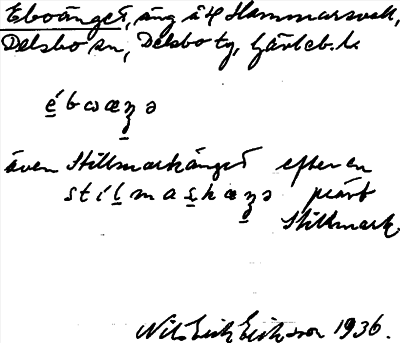 Eboänget, äng å 4 Hammarsvall,
Delsbo sn, Delsbo tg, Gävleb. l.
é b ω æ ȝ ə
även Stillmarkänget efter en
st í l m a s k æ ȝ ə präst
Stillmark
Nils Erik Eriksson 1936.